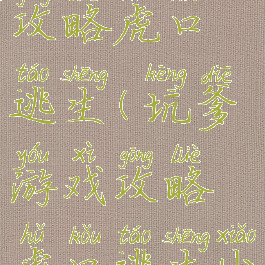 攻略虎口
táo shēng kēng diē
逃生(坑爹
yóu xì gōng lüè
游戏攻略
hǔ kǒu táo shēng xiǎo
虎口逃生小